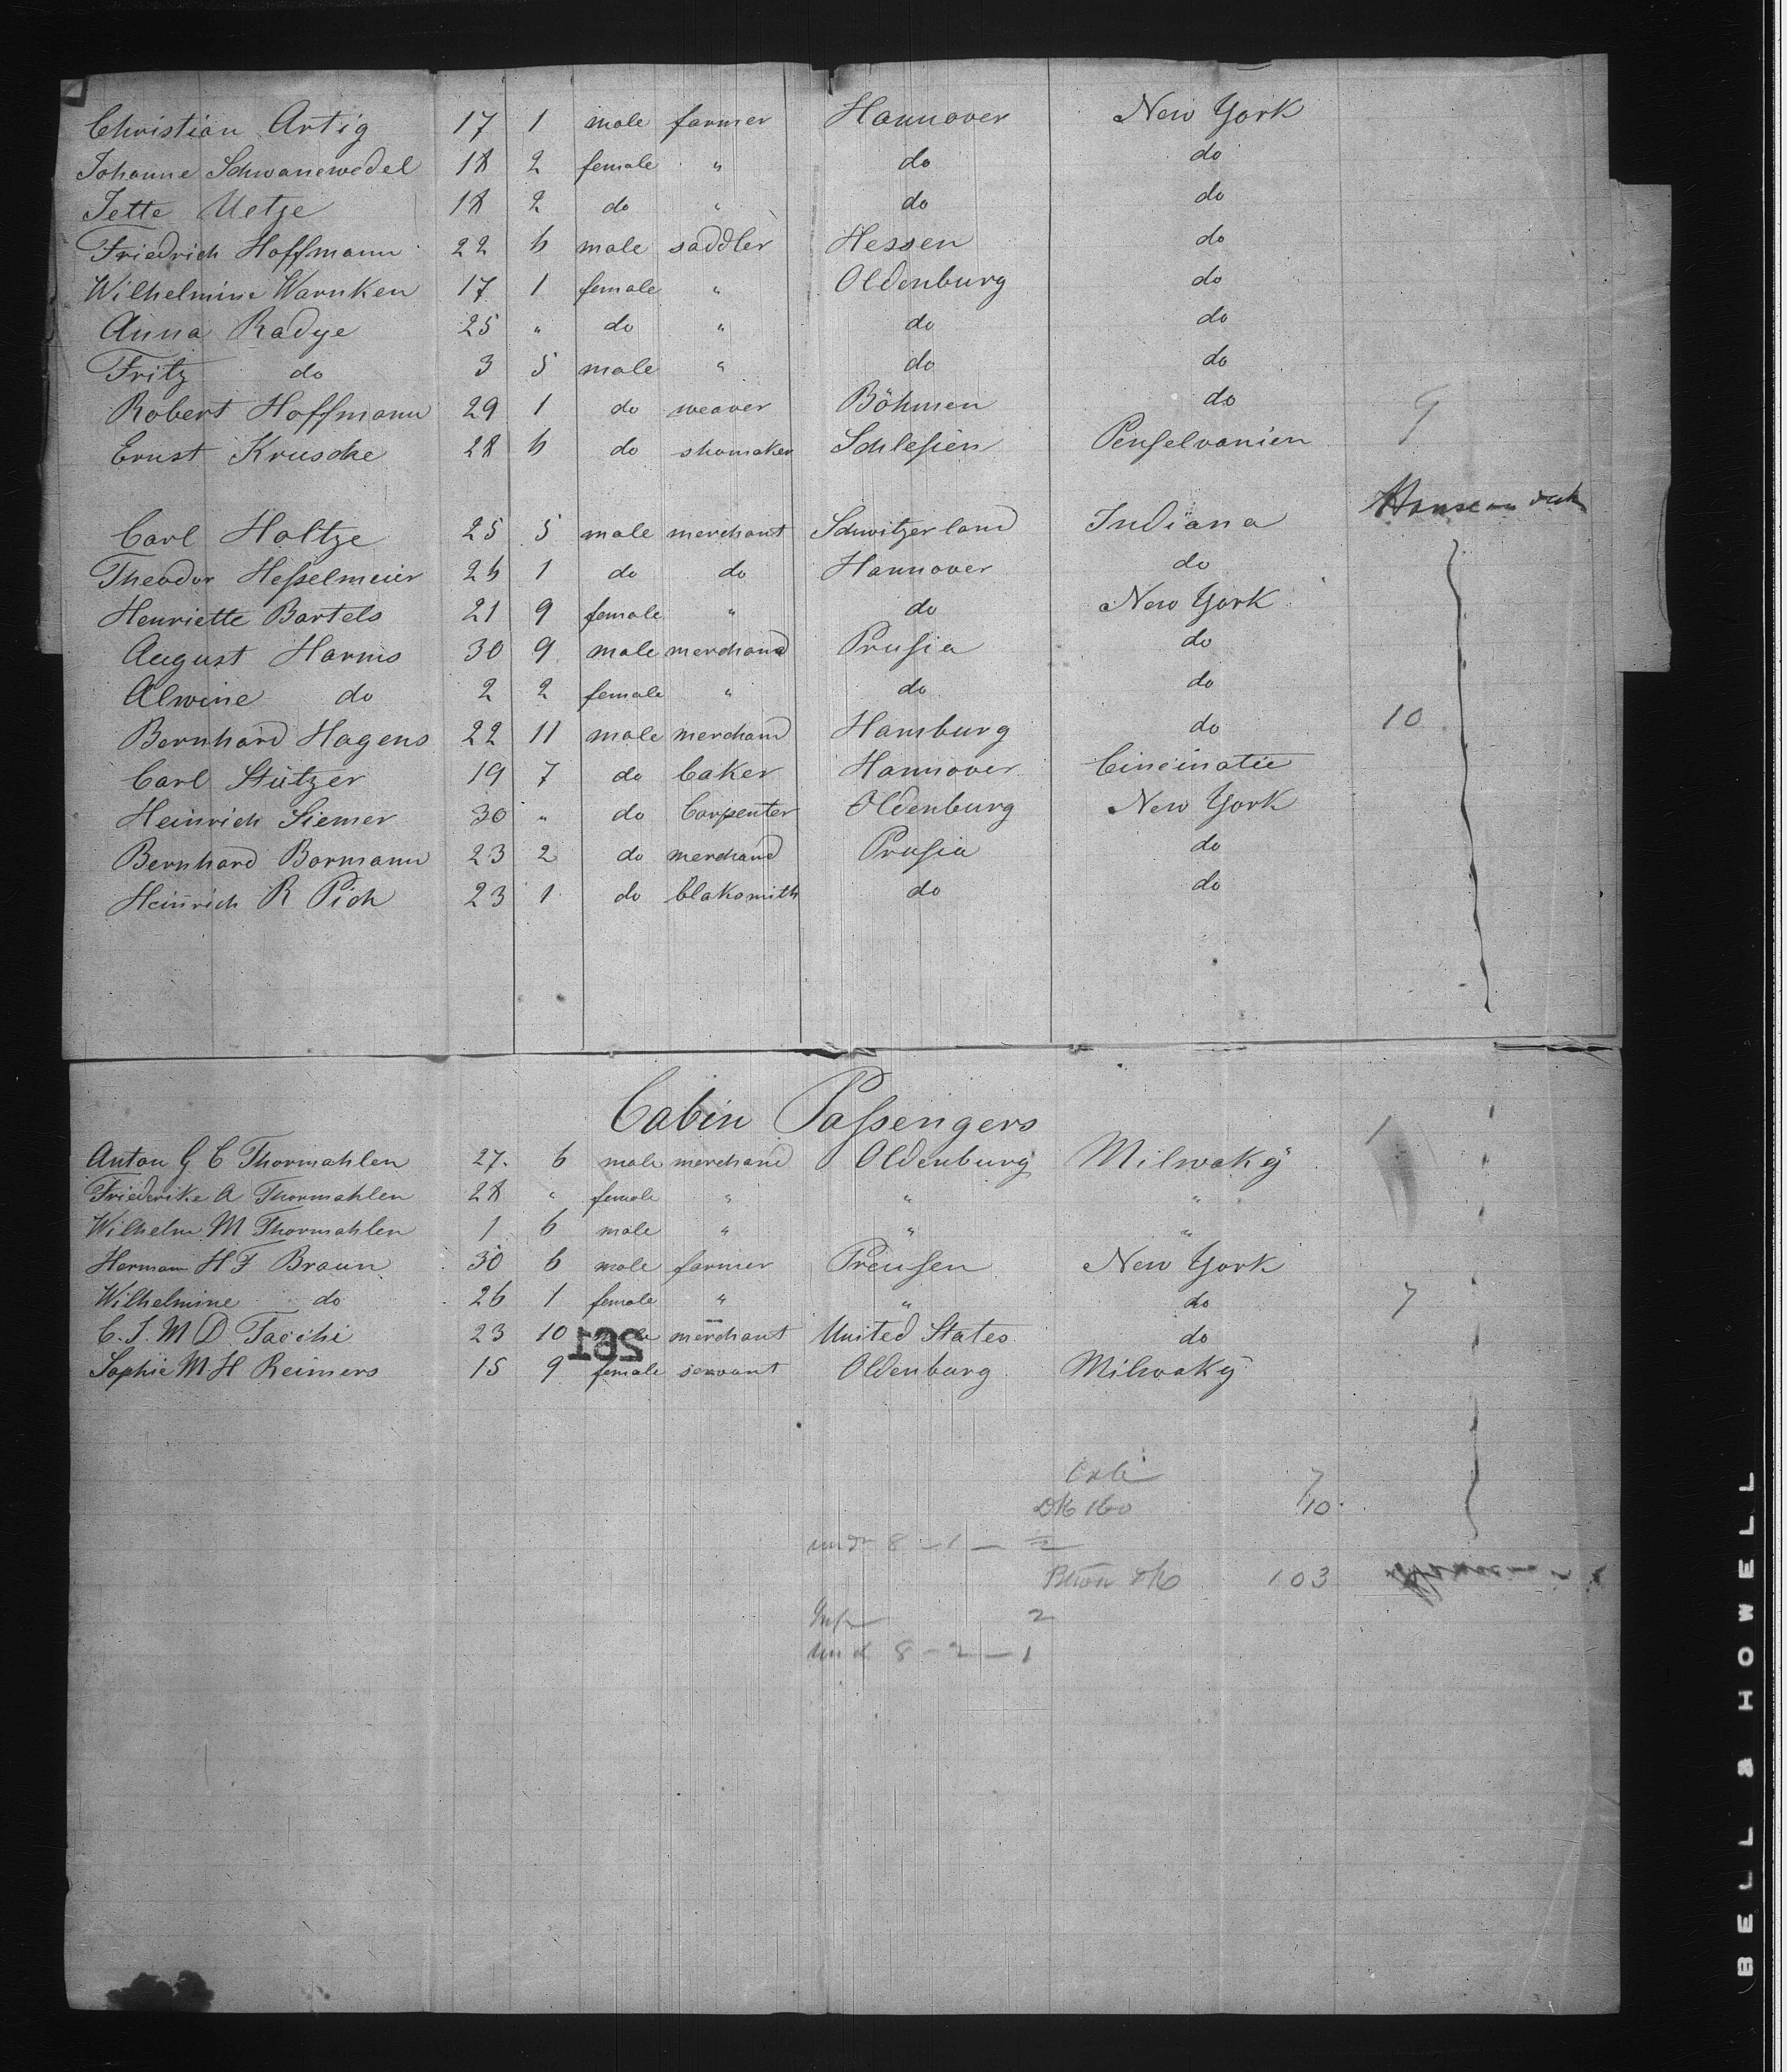 Christian Artig 17 1 male farmer Hannover New York
Johanne Schwanewedel 18 2 female " do do
Jette Uetze 18 2 do " do do
Friedrich Hoffmann 22 6 male saddler Hessen do
Wilhelmine Warnken 17 1 female " Oldenburg do
Anna Radye 25 " do " do do
Fritz do 3 5 male " do do
Robert Hoffmann 29 1 do weaver Böhmen do 9
Ernst Kruscke 28 6 do shomaker Schlesien Penselvanien
Carl Holtze 25 5 male merchant Schwitzerland Indiana
Theodor Hesselmeier 26 1 do do Hannover do
Henriette Bartels 21 9 female " do New York
August Harms 30 9 male merchand Prusia do
Alwine do 2 2 female " do do
Bernhard Hagens 22 11 male merchand Hamburg do 10
Carl Stützer 19 7 do baker Hannover Cincinatie
Heinrich Siemer 30 " do Carpenter Oldenburg New York
Bernhard Bormann 23 2 do merchand Prusia do
Heinrich R Pich 23 1 do blaksmith do do
Cabin Passengers
Anton G C Thormahlen 27. 6 male merchand Oldenburg Milwaky
Friederike A Thormahlen 28 " female " " "
Wilhelm M Thormahlen 1 6 male " " "
Hermann H F Braun 30 6 male farmer Preusen New York
Wilhelmine do 26 1 female " " do 7
C. J. M D Tacchi 23 10 male merchant United States do
195
Sophie M H Reimers 15 9 female servant Oldenburg Milwaky
7
10
8 - 1 -
103
2
8 - 2 - 1
BELL & HOWELL